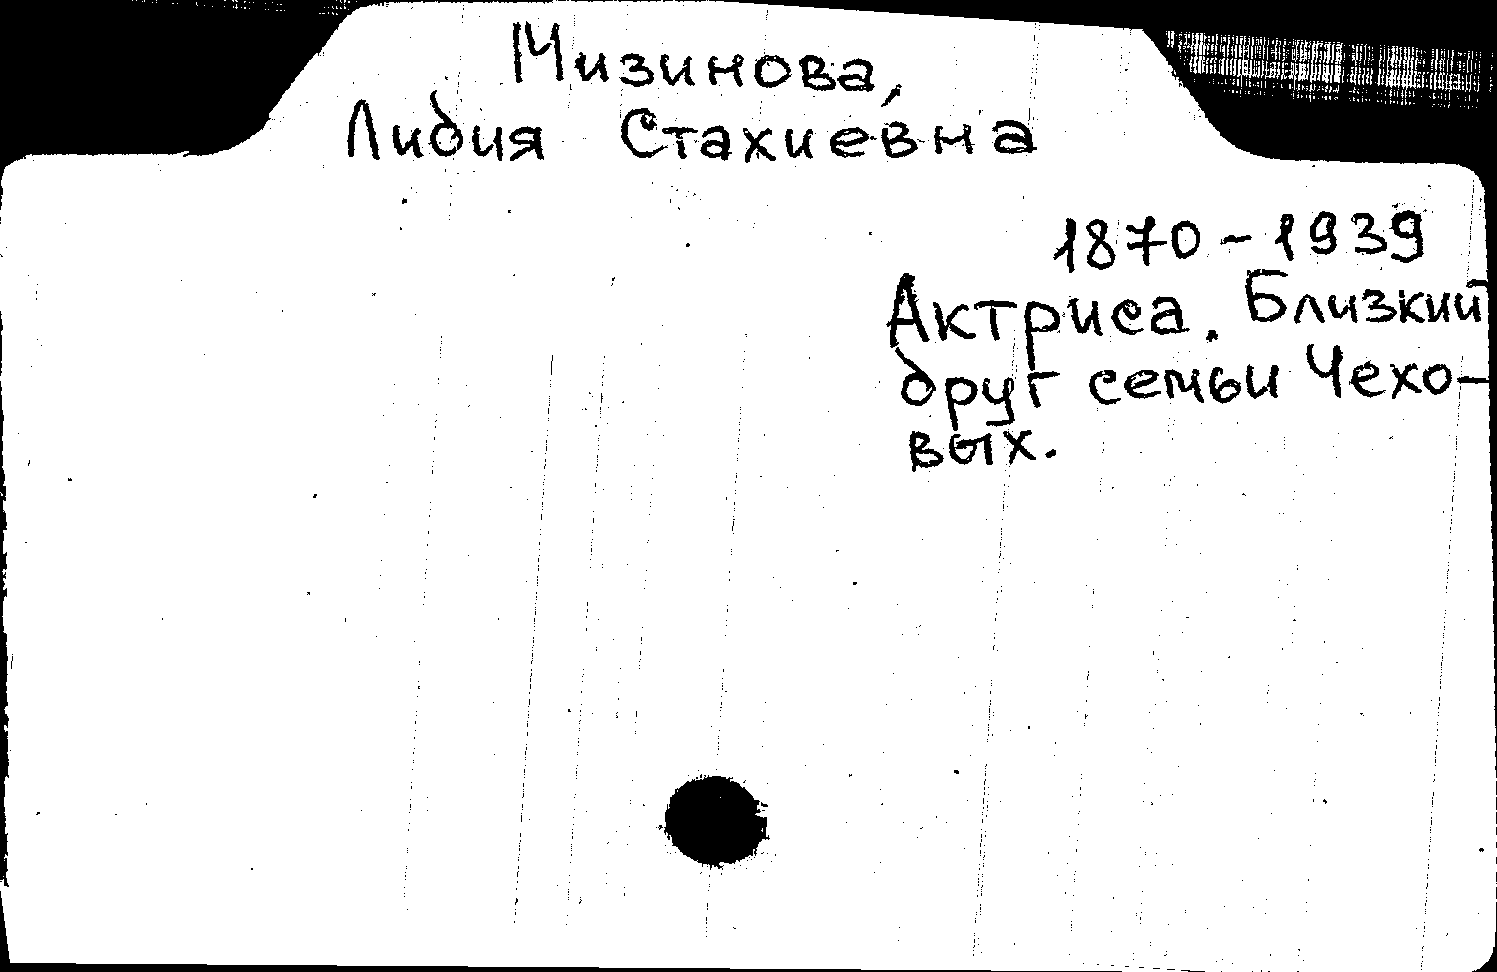 Мизинова,
Лидия Стахиевна
1870-1939
Актриса. Близкий
друг семьи Чехо-
вых.